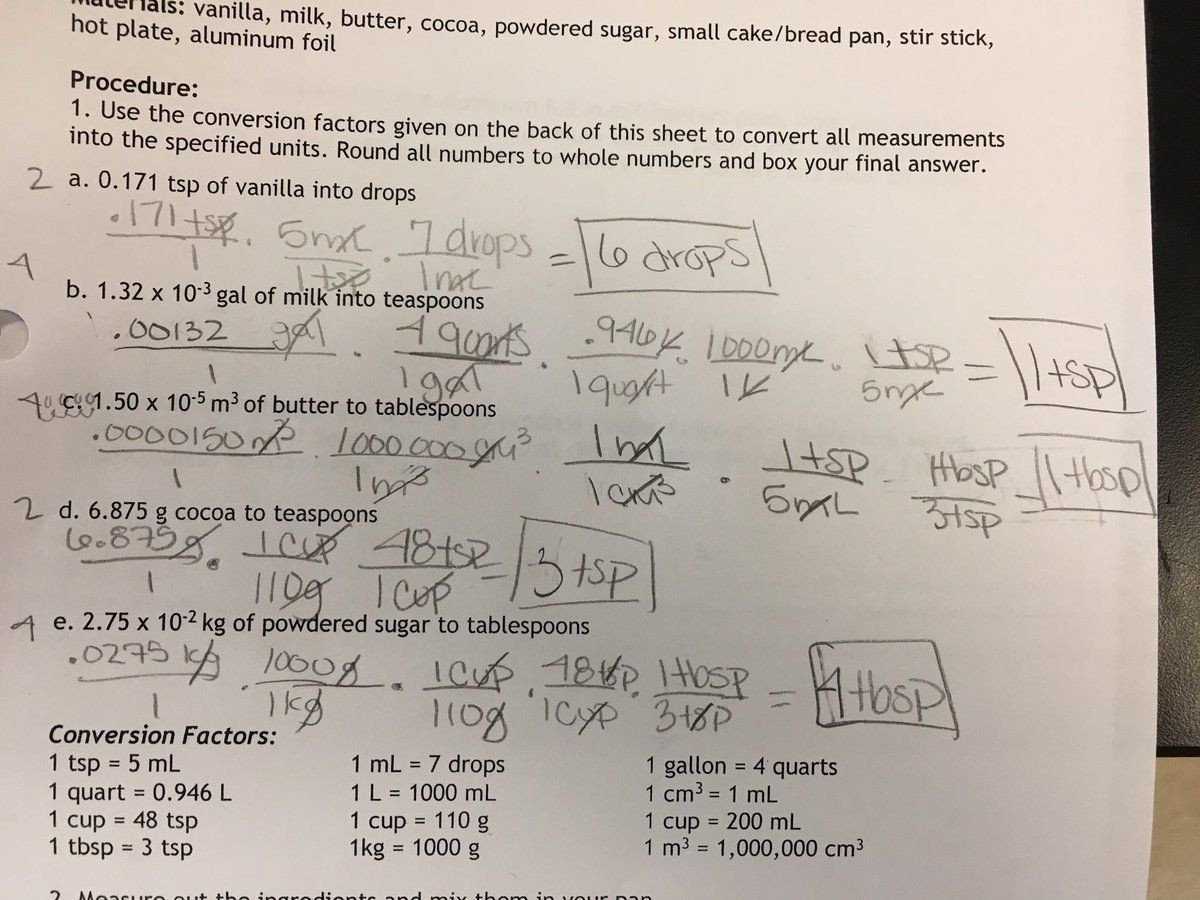 Materials: vanilla, milk, butter, cocoa, powdered sugar, small cake/bread pan, stir stick,
hot plate, aluminum foil
Procedure:
1. Use the conversion factors given on the back of this sheet to convert all measurements
into the specified units. Round all numbers to whole numbers and box your final answer.
2 a. 0.171 tsp of vanilla into drops
.171 tsp . 5 mL . 7 drops = 6 drops
1 1 tsp 1 mL
4 b. 1.32 x 10-3 gal of milk into teaspoons
.00132 gal . 4 quarts . .946 L . 1000 mL . 1 tsp = 1 tsp
1 1 gal 1 quart 1 L 5 mL
4 c. 1.50 x 10-5 m3 of butter to tablespoons
.0000150 m3 . 1000 000 cm3 . 1 mL . 1 tsp . 1 tbsp = 1 tbsp
1 1 m3 1 cm3 5 mL 3 tsp
2 d. 6.875 g cocoa to teaspoons
6.875 g . 1 cup 48 tsp = 3 tsp
1 110g 1 cup
4 e. 2.75 x 10-2 kg of powdered sugar to tablespoons
.0275 kg . 1000 g . 1 cup . 48 tsp . 1 tbsp = 4 tbsp
1 1 kg 110g 1 cup 3 tsp
Conversion Factors:
1 tsp = 5 mL 1 mL = 7 drops 1 gallon = 4 quarts
1 quart = 0.946 L 1 L = 1000 mL 1 cm3 = 1 mL
1 cup = 48 tsp 1 cup = 110 g 1 cup = 200 mL
1 tbsp = 3 tsp 1kg = 1000 g 1 m3 = 1,000,000 cm3
2. Measure out the ingredients and mix them in your pan